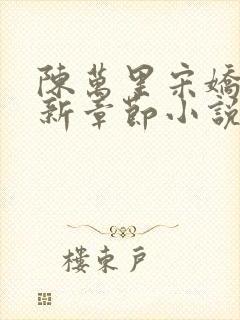 陳萬里宋嬌
新章節小說
樓東戶